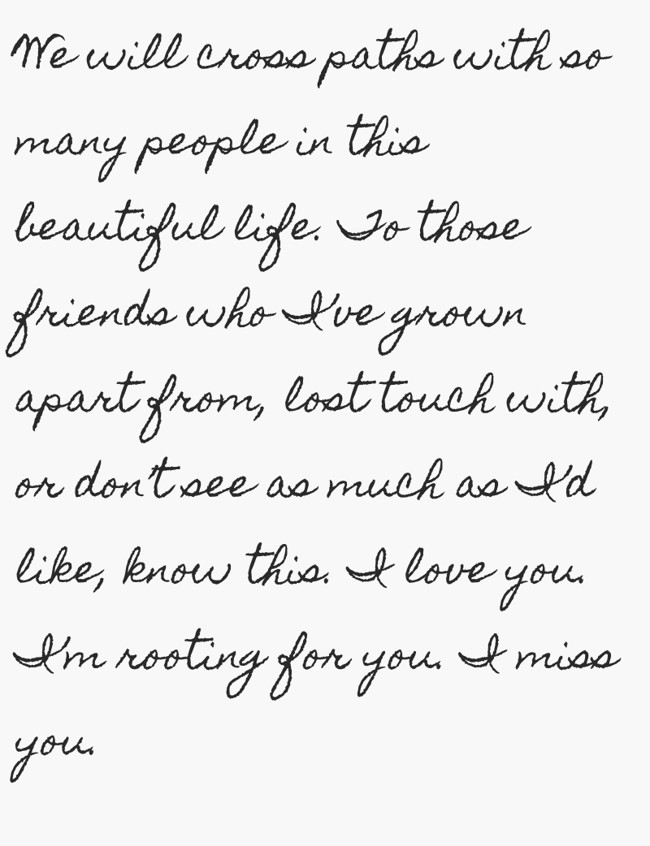 We will cross paths with so
many people in this
beautiful life. To those
friends who I've grown
apart from, lost touch with,
or don't see as much as I'd
like, know this. I love you.
I'm rooting for you. I miss
you.